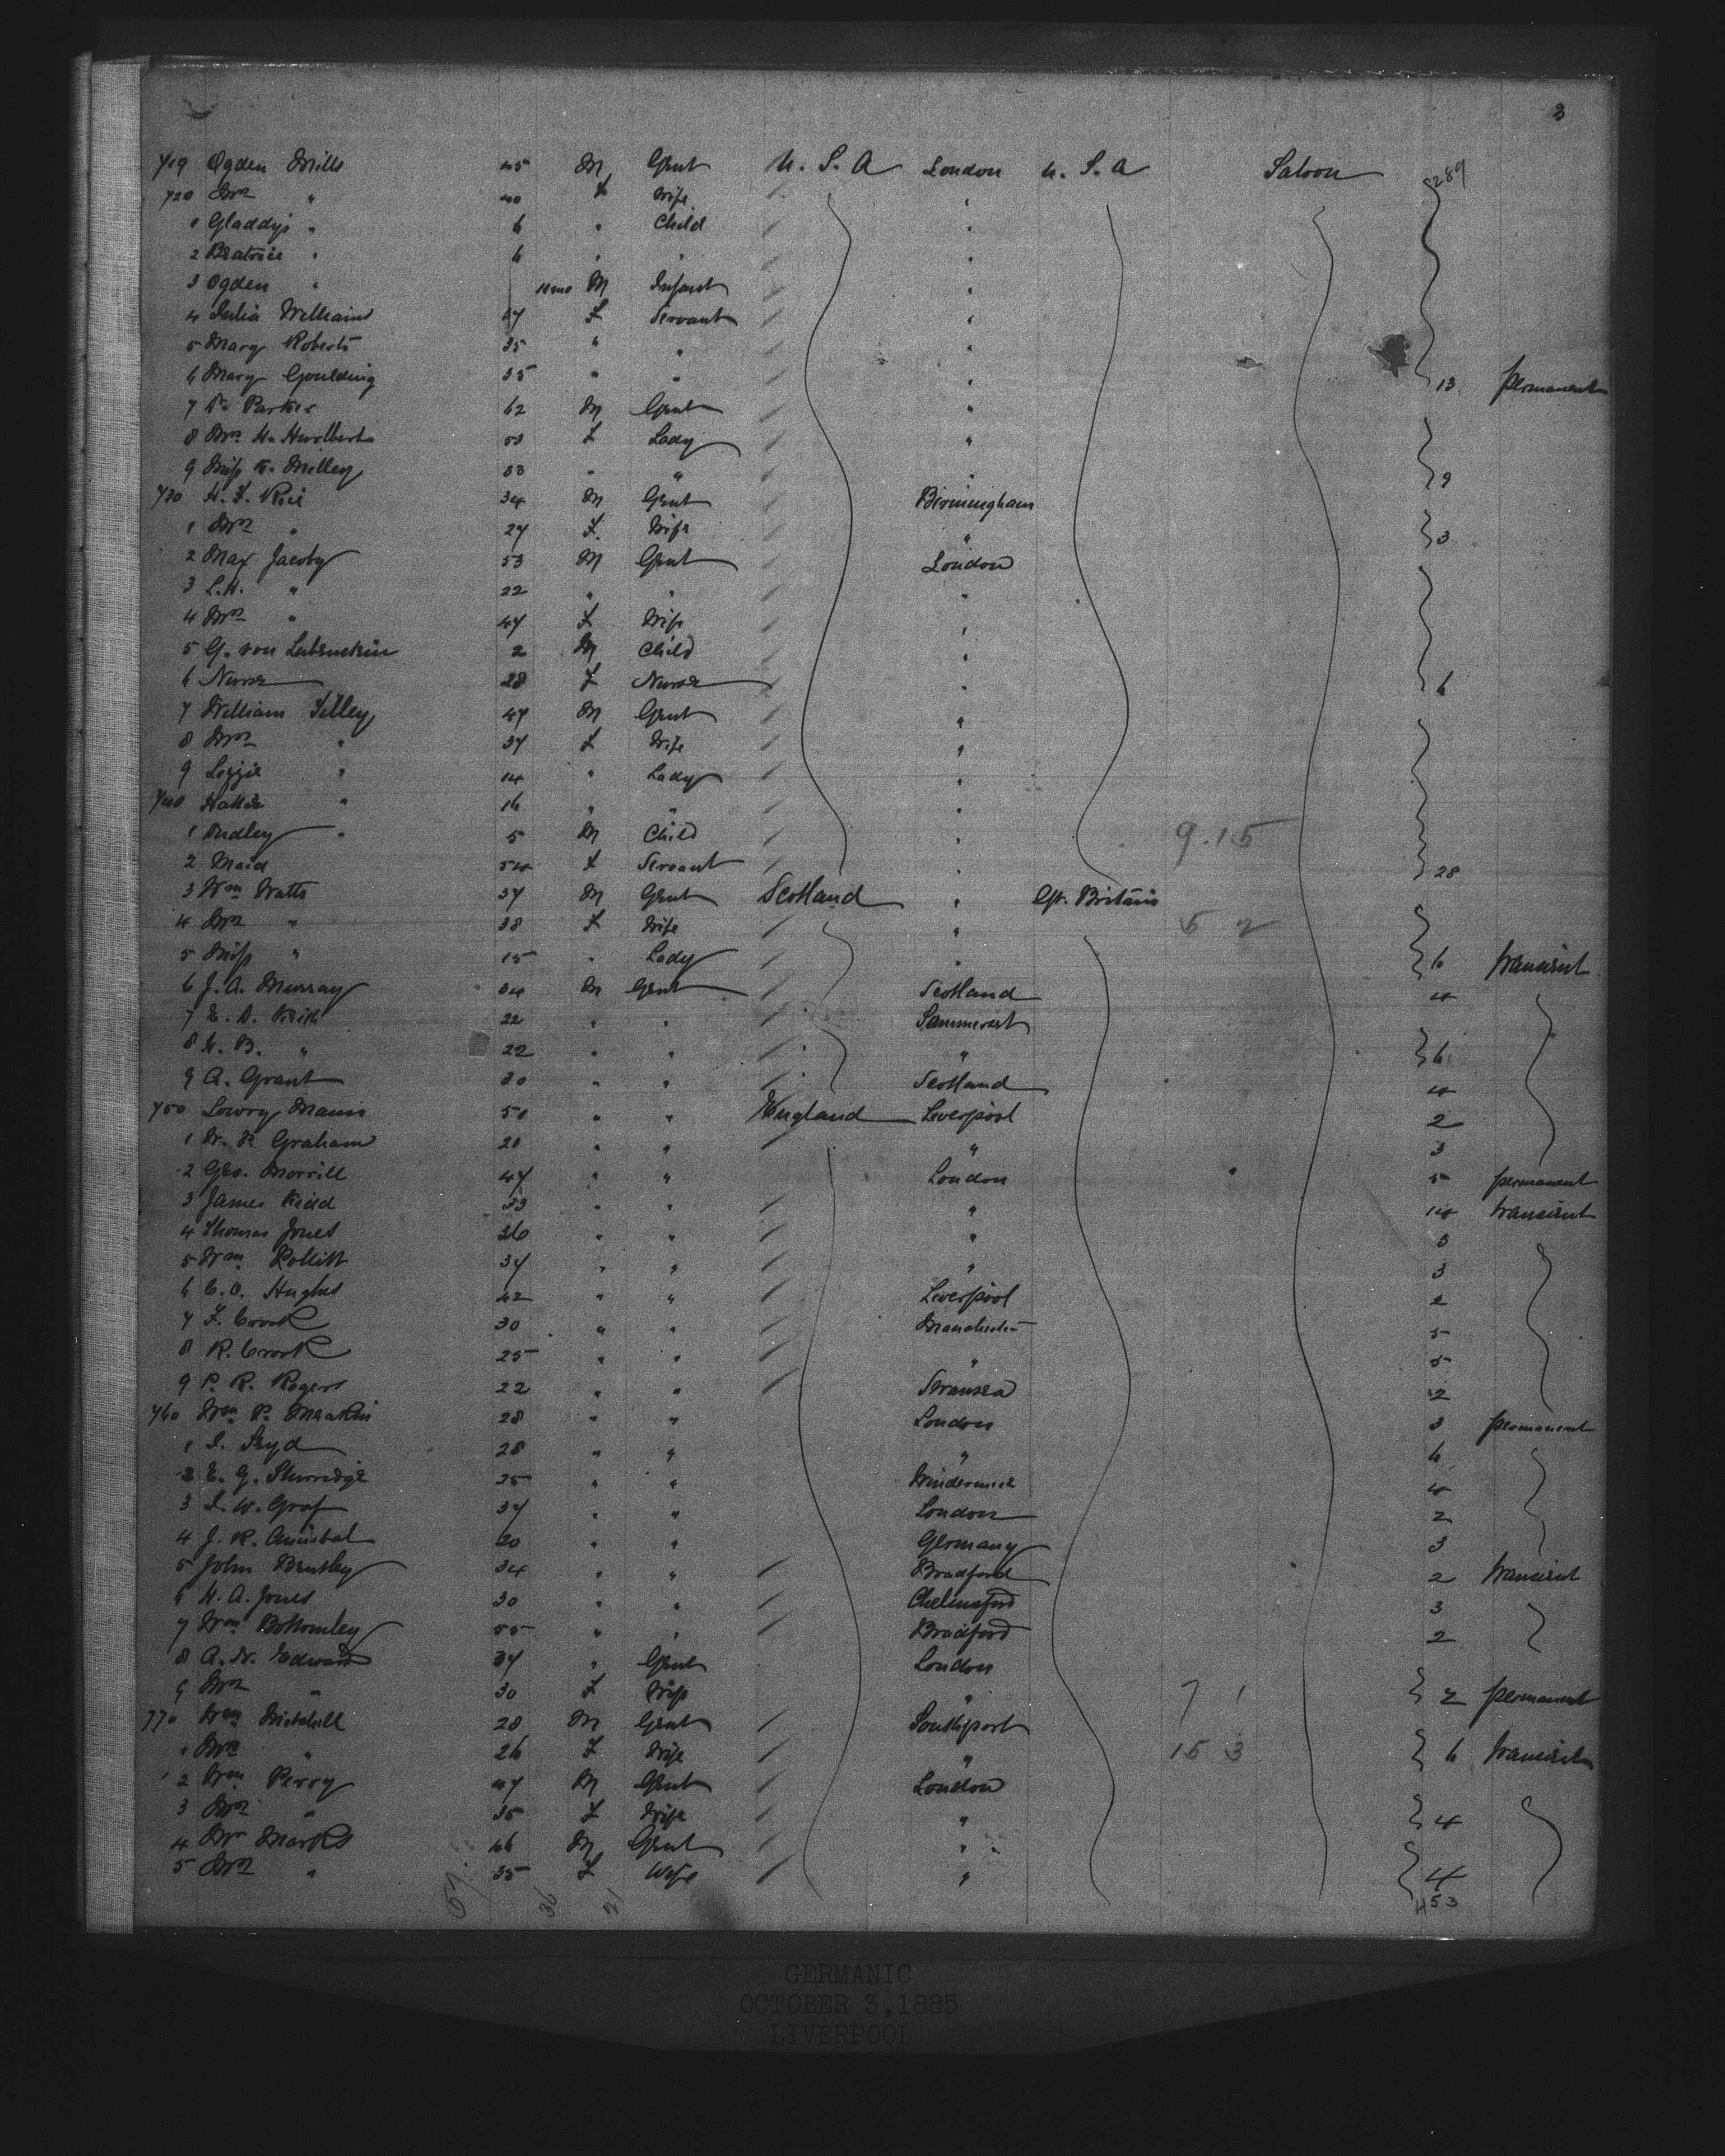 3
719 Ogden Mills 45 M Gent U. S. A London U. S. A Saloon 289
720 Mrs " 40 F Wife "
1 Gladdys " 6 " Child "
2 Beatrice " 6 " " "
3 Ogden " 11 mo M Infant "
4 Julia Williams 37 F Servant "
5 Mary Roberts 35 " " "
6 Mary Goulding 35 " " " 13 permanent
7 Parker 62 M Gent "
8 Mrs H. Hurlbert 53 F Lady "
9 Miss Milley 33 " " " 9
730 H. F. Rice 34 M Gent Birmingham
1 Mrs " 27 F. Wife " 3
2 Max Jacoby 53 M Gent London
3 L.H. " 22 " " "
4 Mrs " 47 F Wife "
5 G. von 2 M Child "
6 Nurse 28 F Nurse " 6
7 William Tilley 47 M Gent "
8 Mrs " 37 F Wife "
9 Lizzie " 14 " Lady "
740 Hattie " 16 " " "
1 Dudley " 5 M Child " 9.15
2 Maid 54 F Servant " 28
3 Wm Watts 37 M Gent Scotland " Gt. Britain
4 Mrs " 38 F Wife " 5 2
5 Miss " 15 " Lady " 6 transient
6 J. A. Murray 34 M Gent Scotland 4
7 Keith 22 " " Sommerset
8 H. B. " 22 " " " 6
9 A. Grant 30 " " Scotland 4
750 Lowry Mann 50 " " England Liverpool 2
1 Graham 20 " " " 3
2 Geo. Morrill 47 " " London 5 permanent
3 James Kidd 33 " " " 14 transient
4 Thomas Jones 36 " " "
5 Wm Pollitt 37 " " " 3
6 C. O. Hughes 42 " " Liverpool 2
7 F. Crook 30 " " Manchester 5
8 R. Crook 25 " " " 5
9 P. R. Rogers 22 " " Swansea 2
760 Wm P. Meakin 28 " " London 3 permanent
1 28 " " "
2 E. G. 25 " " Windermere 4
3 Graf 37 " " London 2
4 J. R. 20 " " Germany 3
5 John Bentley 34 " " Bradford 2 transient
6 H. A. Jones 30 " " Chelmsford 3
7 Wm Bottomley 55 " " Bradford 2
8 Edwards 37 " Gent London
9 Mrs " 30 F Wife " 7 1 2 permanent
770 Wm Mitchell 28 M Gent Southport
1 Mrs " 26 F Wife " 15 3 6 transient
2 Wm Perry 47 M Gent London
3 Mrs " 35 F Wife " 4
4 Mr Marks 46 M Gent "
5 Mrs " 35 F Wife " 4
57. 36 21 453
GERMANIC
OCTOBER 3, 1885
LIVERPOOL